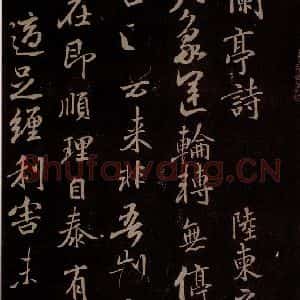 蘭亭詩 陸柬
象運輪轉無停
去来非吾制
在即順理自泰有
適足纏利害未
Shufawang.CN